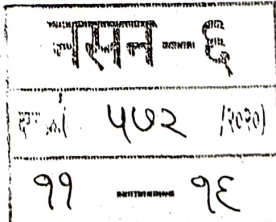 वसन - ६
द.क्र.( ५७२ /२०२०)
११ - १६